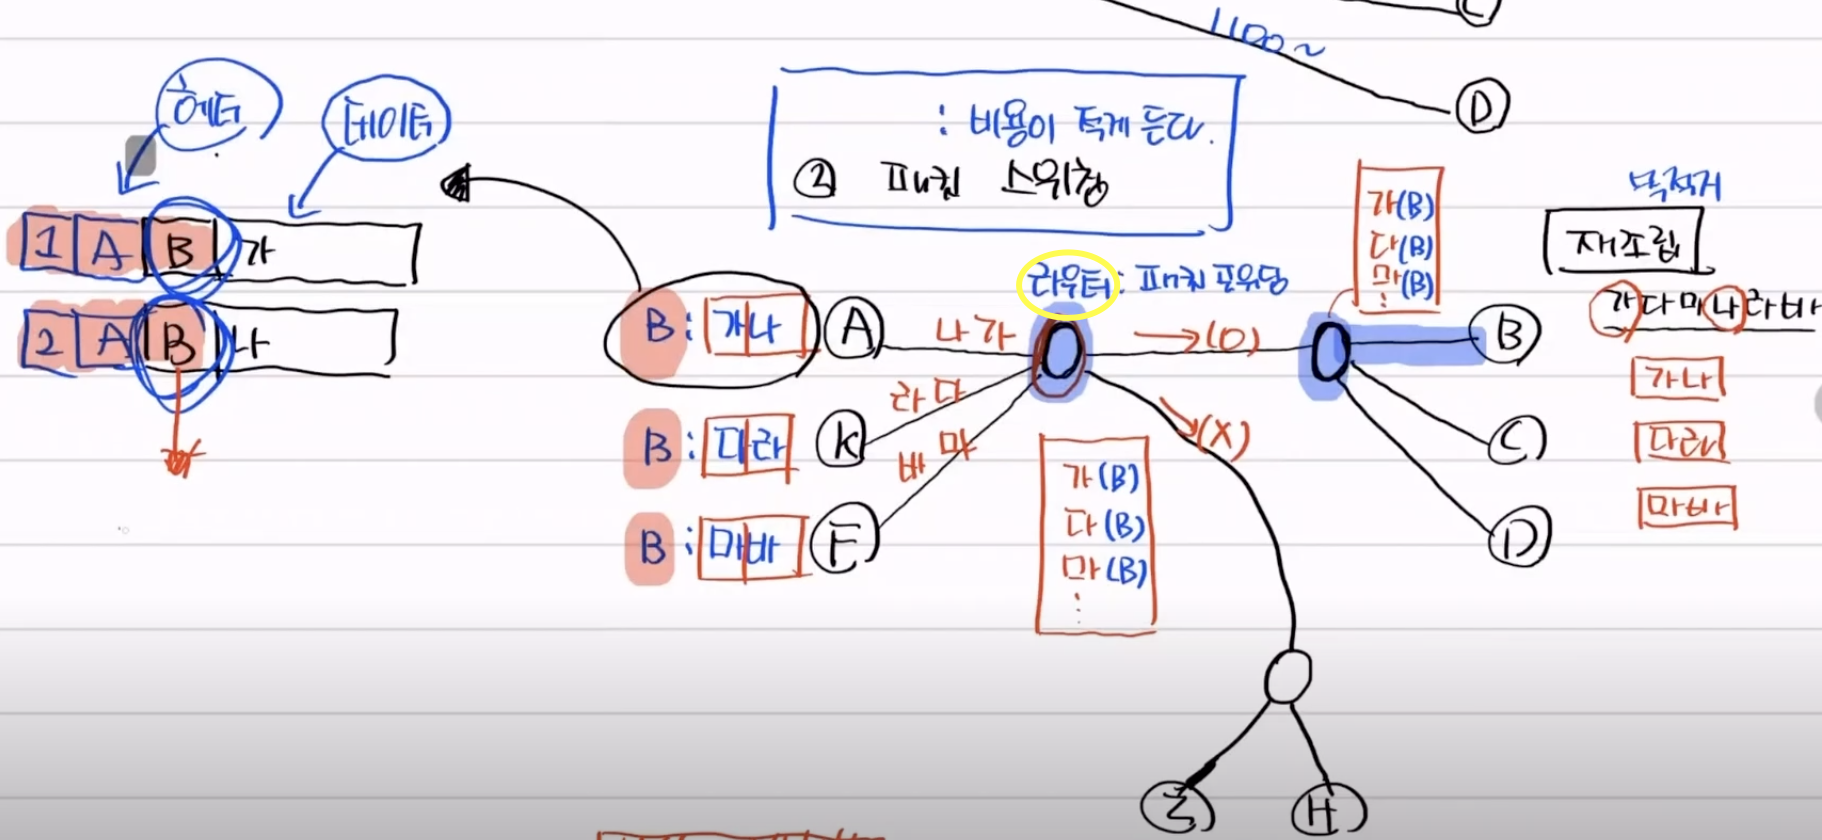 C
1100~
D
헤더
데이터
: 비용이 적게 든다.
② 패킷 스위칭
목적지
재조립
라우터 : 패킷 포워딩
가(B)
다(B)
마(B)
⋮
1 A B 가
2 A B 나
B : 가나 A
나 가
→(O)
B
가다마나라바
가나
다라
마바
B : 다라 K
라 다
(X)
C
B : 마바 F
바 마
D
가(B)
다(B)
마(B)
⋮
H